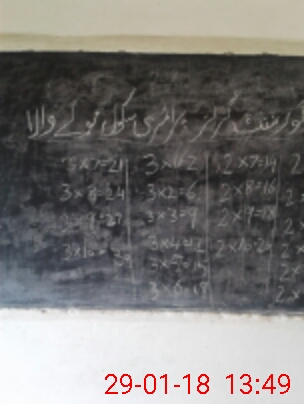 گورنمنٹ گرلز پرائمری سکول موکے والا
3×7=21 3×1=2 2×7=14 2
3×8=24 3×2=6 2×8=16 2×
3×9=27 3×3=9 2×9=18 2×
3×10=30 3×4=12 2×10=20 2×
3×5=15 2×
3×6=18 2×
29-01-18 13:49